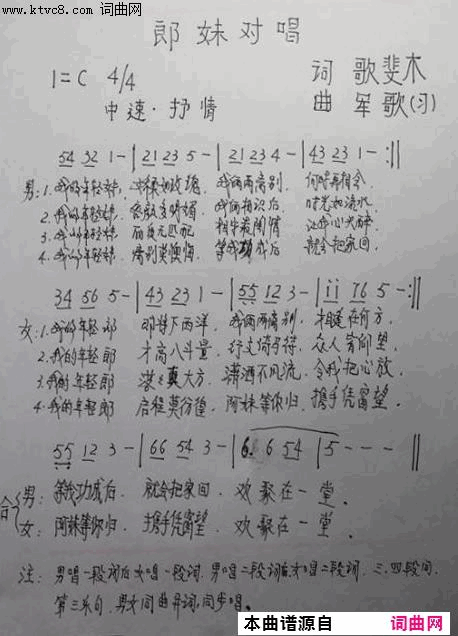 www.ktvc8.com 词曲网
郎妹对唱
1=C 4/4 词 歌斐木
中速·抒情 曲 军歌(习)
54 32 1 - | 21 23 5 - | 21 23 4 - | 43 23 1 - :||
男: 1. 我的年轻妹, 我俩两离别, 何时再相会
2. 我的年轻妹, 我俩相识后, 时光如流水
3. 我的年轻妹,
4. 我的年轻妹, 等我功成后, 就会把家回,
34 56 5 - | 43 23 1 - | 55 12 3 - | 11 76 5 - :||
女: 1. 我的年轻郎 那年下西洋, 我俩两离别, 相逢在何方,
2. 我的年轻郎 才高八斗量, 众人皆仰望,
3. 我的年轻郎 大方, 潇洒不风流, 令我把心放,
4. 我的年轻郎 启程莫彷徨, 阿妹等你归, 携手凭窗望,
55 12 3 - | 66 54 3 - | 6. 6 54 | 5 - - - ||
合 男: 等我功成后, 就会把家回, 欢聚在一堂.
女: 阿妹等你归, 携手凭窗望, 欢聚在一堂.
注: 男唱一段词后女唱一段词, 男唱二段词后女唱二段词, 三.四段同.
第三乐句, 男女同曲异词, 同步唱.
本曲谱源自 词曲网